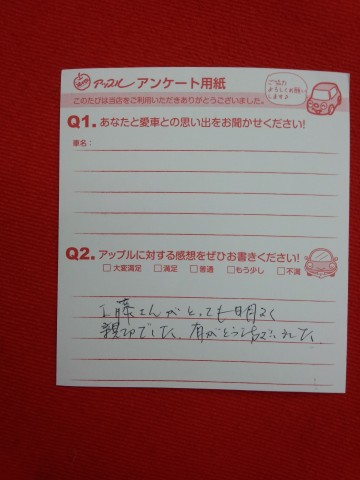 アップル アンケート用紙
ご協力
よろしくお願い
します♪
このたびは当店をご利用いただきありがとうございました。
Q1. あなたと愛車との思い出をお聞かせください!
車名:
Q2. アップルに対する感想をぜひお書きください!
□大変満足 □満足 □普通 □もう少し □不満
工藤さんがとても明るく
親切でした。有がとうございました。